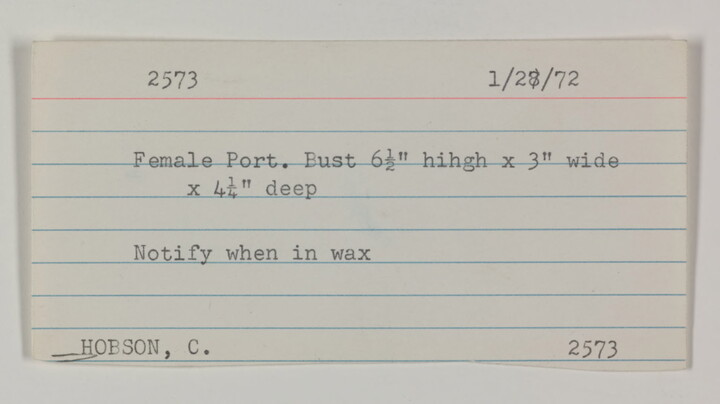 2573 1/28/72
Female Port. Bust 6½" hihgh x 3" wide
x 4¼" deep
Notify when in wax
HOBSON, C. 2573